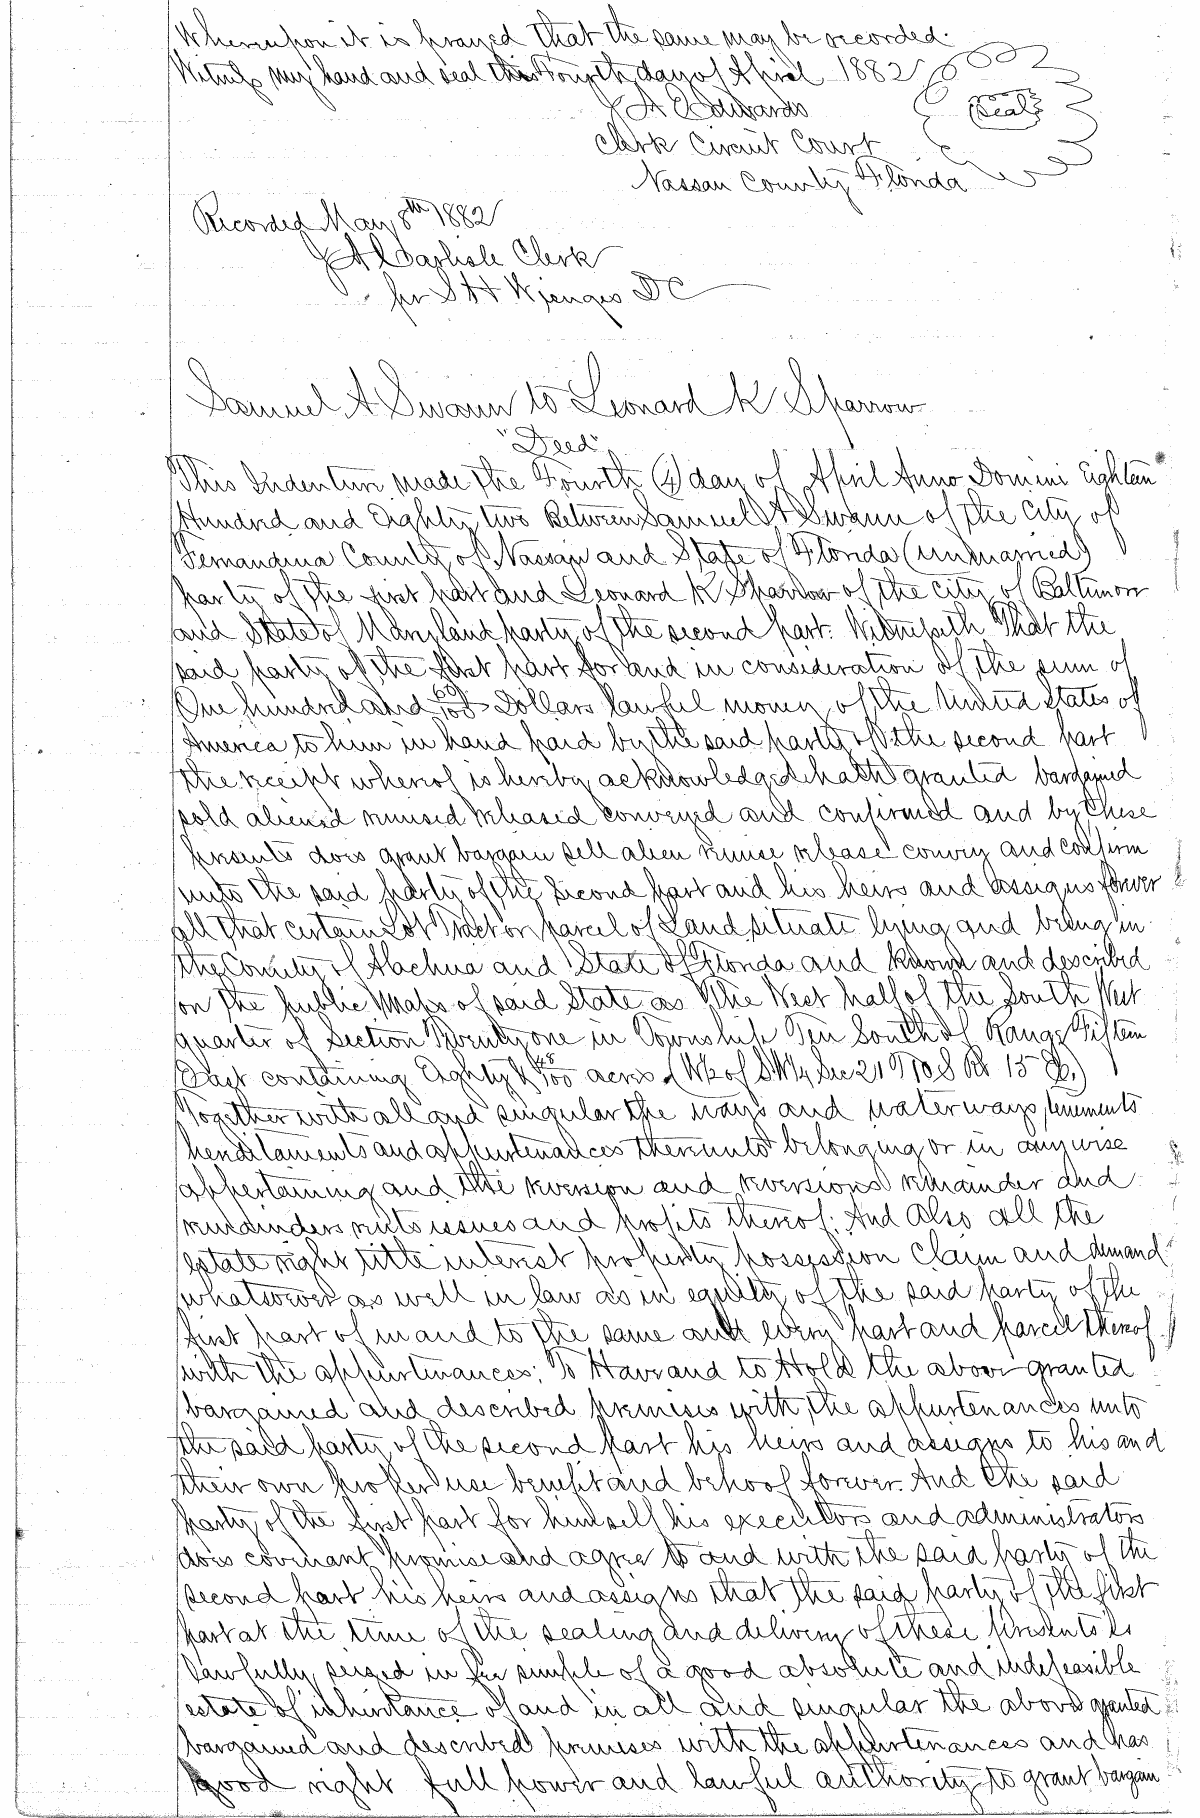 Whereupon it is prayed that the same may be recorded.
Witness my hand and seal this Fourth day of April 1882
Edwards (Seal)
Clerk Circuit Court
Nassau County Florida
Recorded May 8th 1882
J A Carlisle Clerk
per S H Wienges DC
Samuel A Swann to Leonard K Sparrow
"Deed"
This Indenture made the Fourth (4) day of April Anno Domini Eighteen
Hundred and Eighty two Between Samuel A Swann of the City of
Fernandina County of Nassau and State of Florida (unmarried)
party of the first part and Leonard K Sparrow of the city of Baltimore
and State of Maryland party of the second part. Witnesseth That the
said party of the first part for and in consideration of the sum of
One hundred and 60/100 Dollars lawful money of the United States of
America to him in hand paid by the said party of the second part
the receipt whereof is hereby acknowledged hath granted bargained
sold aliened remised released conveyed and confirmed and by these
presents does grant bargain sell alien remise release convey and confirm
unto the said party of the second part and his heirs and assigns forever
all that certain Lot Tract or parcel of Land situate lying and being in
the County of Alachua and State of Florida and known and described
on the public Maps of said State as The West half of the South West
quarter of Section Twenty one in Township Ten South of Range Fifteen
East containing Eighty & 48/100 acres. (W½ of S.W¼ Sec 21 T10 S R 15 E.)
Together with all and singular the ways and waterways, tenements
hereditaments and appurtenances thereunto belonging or in anywise
appertaining and the reversion and reversions remainder and
remainders rents issues and profits thereof: And Also all the
estate right title interest property possession claim and demand
whatsoever as well in law as in equity of the said party of the
first part of in and to the same and every part and parcel thereof
with the appurtenances: To Have and to Hold the above granted
bargained and described premises with the appurtenances unto
the said party of the second part his heirs and assigns to his and
their own proper use benefit and behoof forever. And the said
party of the first part for himself his executors and administrators
does covenant promise and agree to and with the said party of the
second part his heirs and assigns that the said party of the first
part at the time of the sealing and delivery of these presents is
lawfully seized in fee simple of a good absolute and indefeasible
estate of inheritance of and in all and singular the above granted
bargained and described premises with the appurtenances and has
good right full power and lawful authority to grant bargain